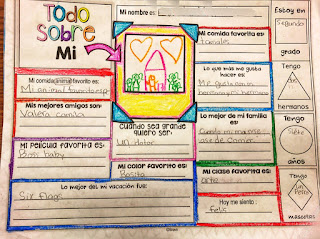 Todo
Sobre
Mi
Mi nombre es:
Estoy en
Segundo
grado
Mi comida favorita es:
tamales
Lo que más me gusta
hacer es:
Tengo
hermanos
Mi comida/animal favorito es:
Mi animal favorito es
Mis mejores amigos son:
Valeria camila
Cuando sea grande
quiero ser:
un dotor
Lo mejor de mi familia
es:
Tengo
Siete
años
Mi Película favorita es:
Boss baby
Mi color favorito es:
Rosita
Mi clase favorita es:
arte
Tengo
un
Perro
mascotas
Lo mejor de mi vacación fue:
Six flags
Hoy me siento:
feliz